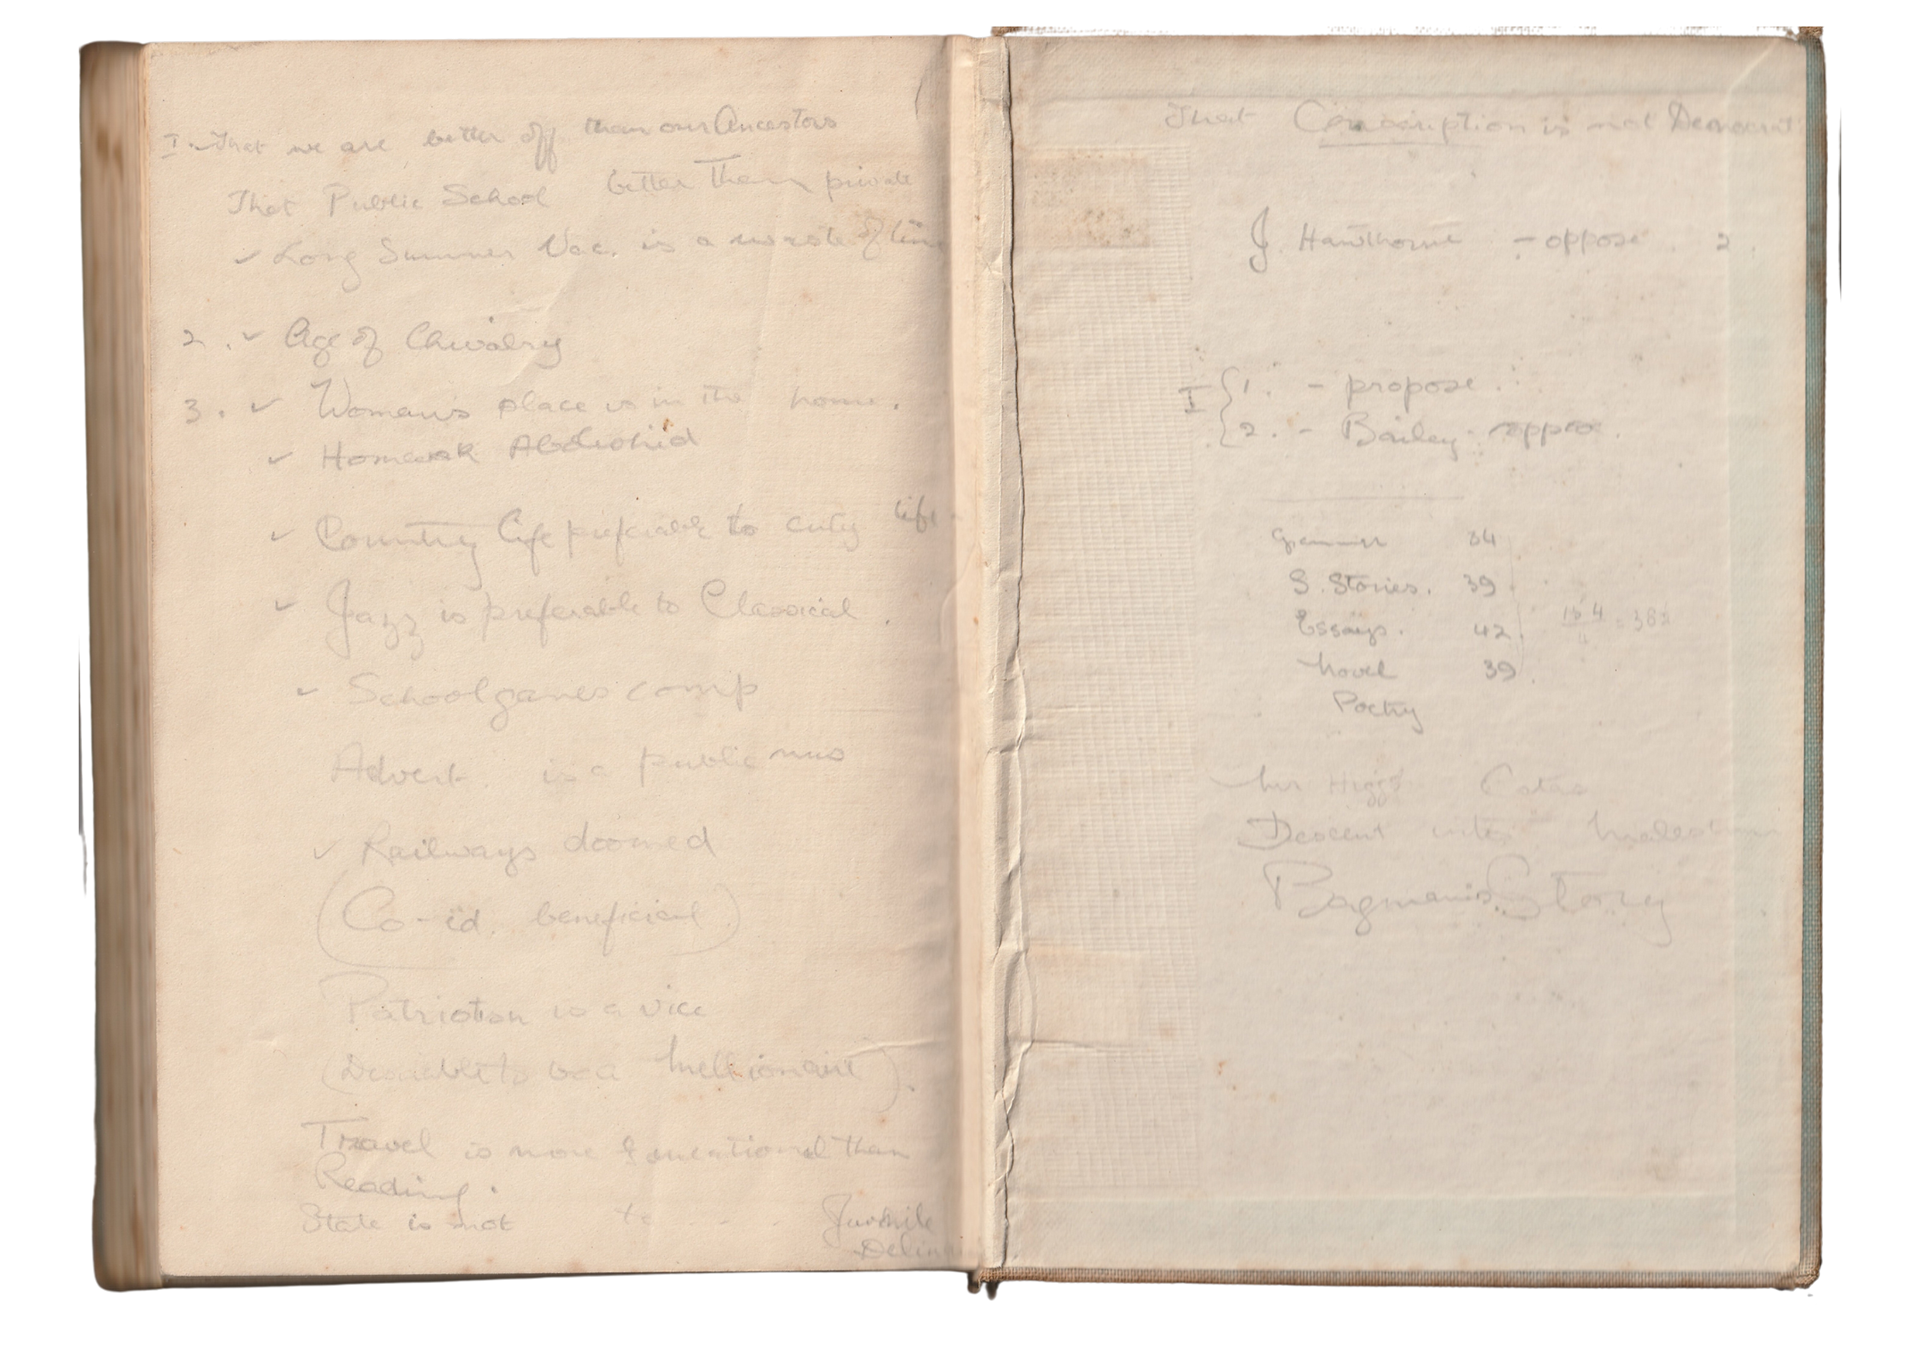 I. That we are better off than our Ancestors
That Public School better than private
✓ Long Summer Vac. is a waste of time
2. ✓ Age of Chivalry
3. ✓ Woman's place is in the home.
✓ Homework Abolished
✓ Country life preferable to city life
✓ Jazz is preferable to Classical.
✓ School games comp
Advert. is a public nuis
✓ Railways doomed
(Co-ed. beneficial)
Patriotism is a vice
(Desirable to be a Millionaire).
Travel is more Educational than
Reading.
State is not to - - - Juvenile
Delin
That Conscription is not Democrat
J. Hawthorne - oppose. 2.
I { 1. - propose.
2. - Bailey - oppose.
Grammar 34
S. Stories. 39
Essays. 42
Novel 39.
154/4 = 38½
Poetry
Higgs
Descent into Maelstrom
Bagman's Story